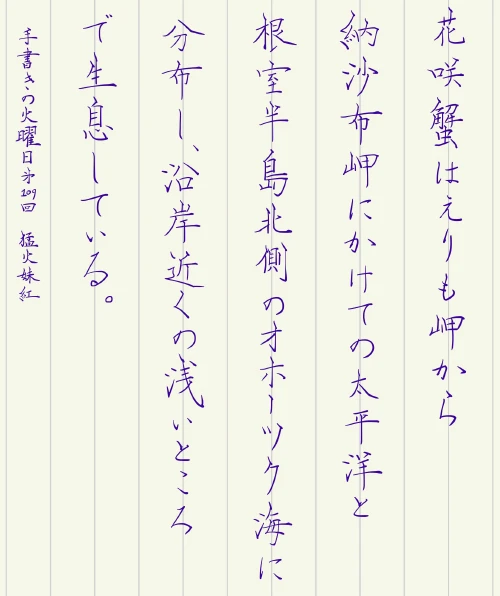 花咲蟹はえりも岬から
納沙布岬にかけての太平洋と
根室半島北側のオホーツク海に
分布し、沿岸近くの浅いところ
で生息している。
手書きの火曜日第109回 猛火妹紅